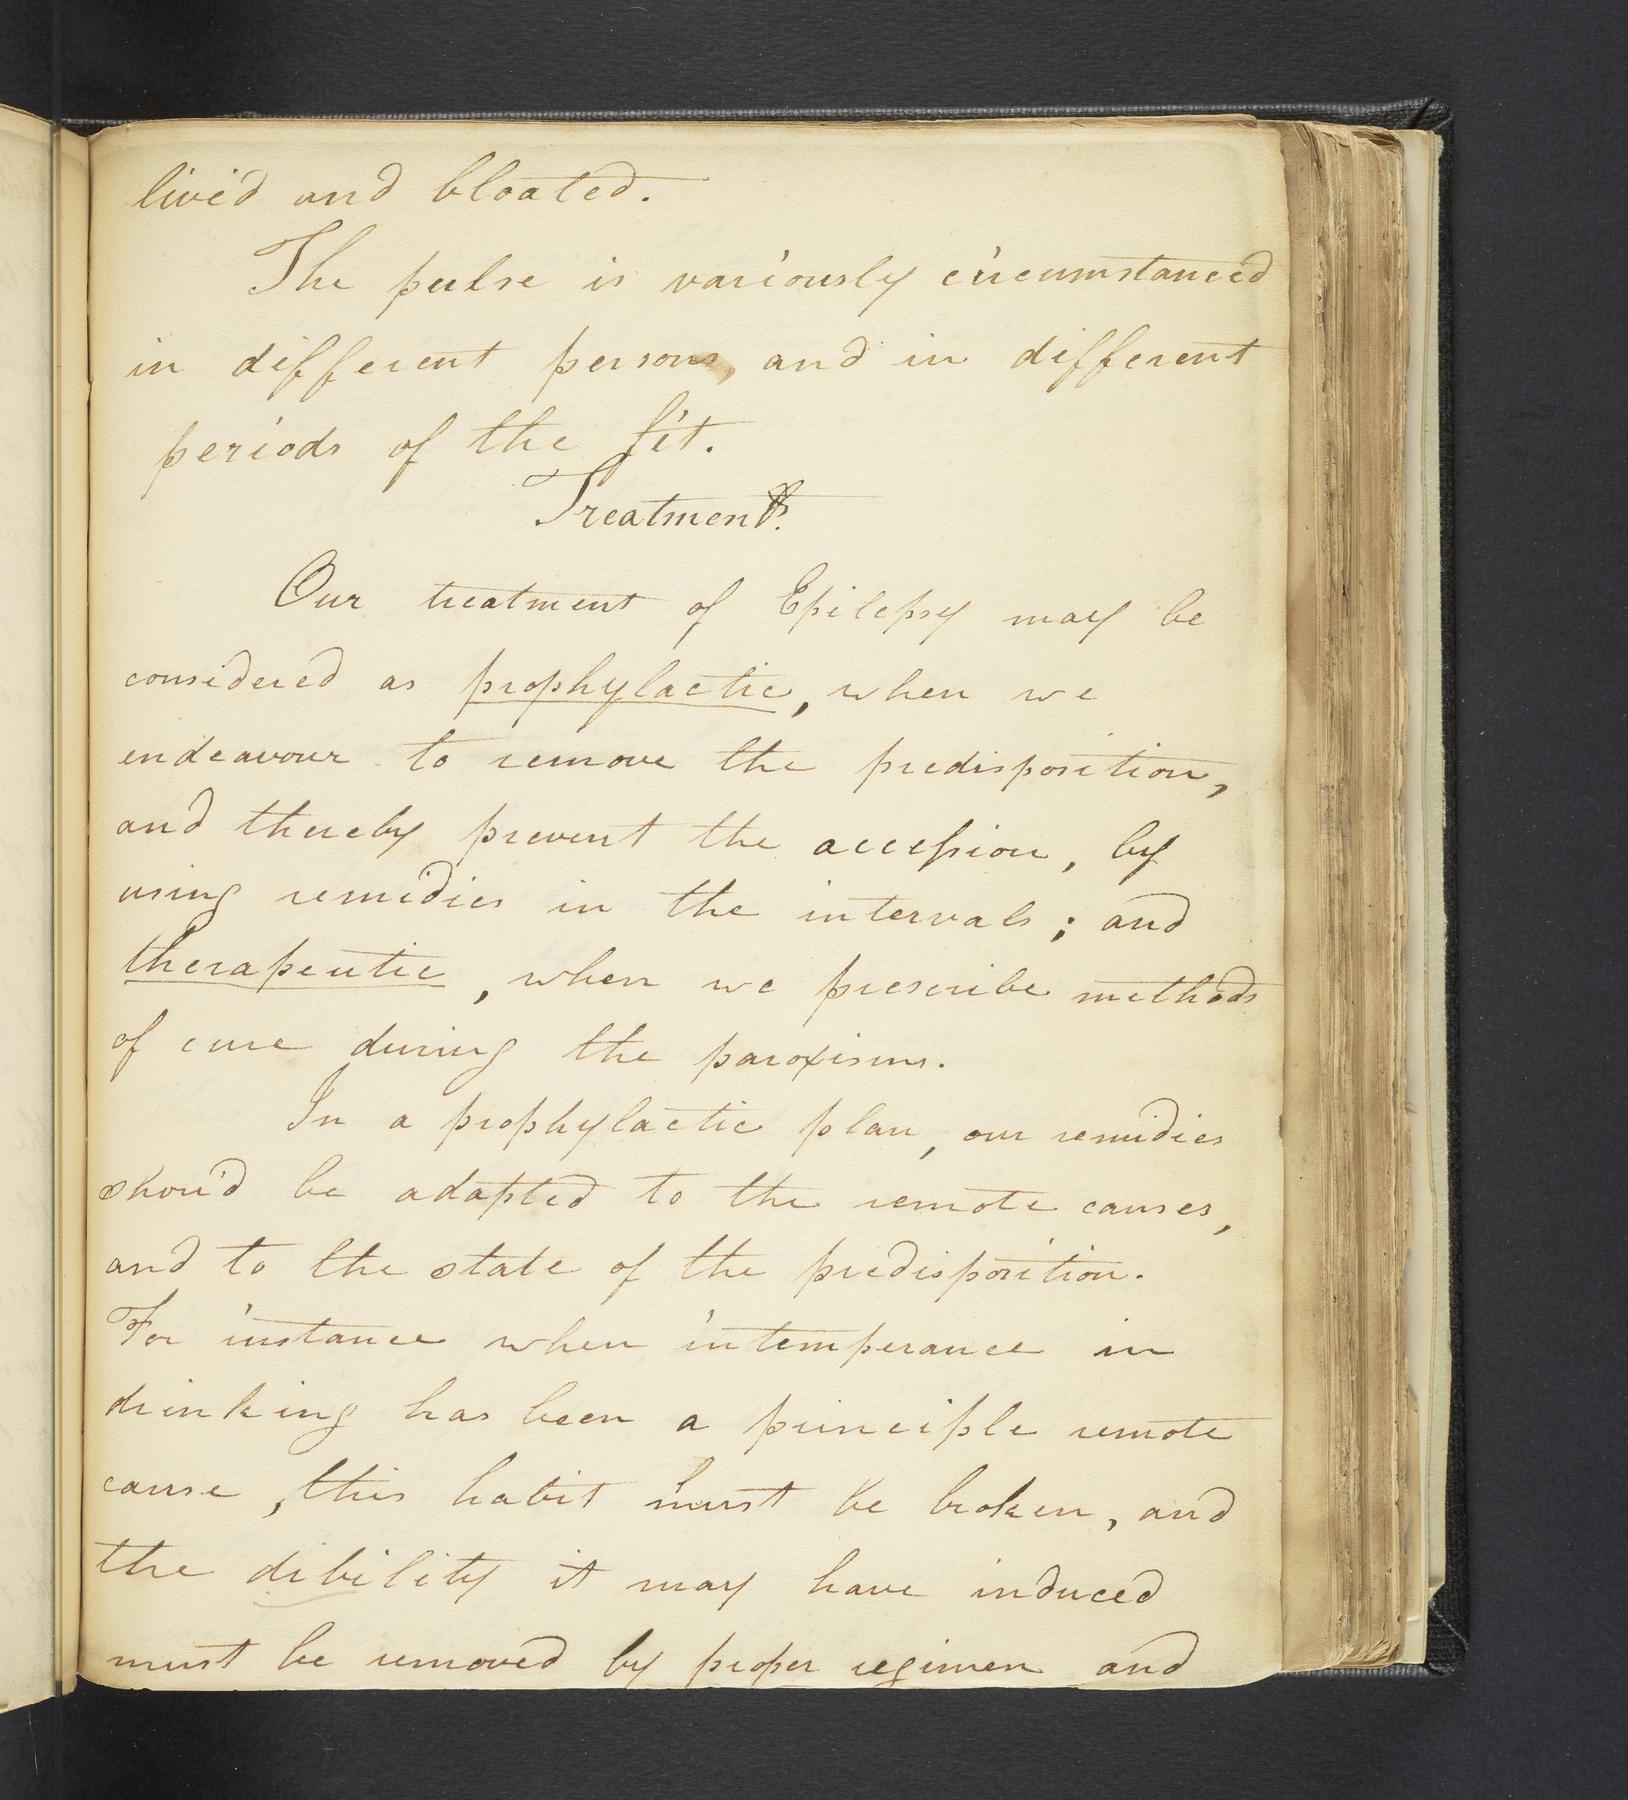 livid and bloated.
The pulse is variously circumstanced
in different persons, and in different
periods of the fit.
Treatment.
Our treatment of Epilepsy may be
considered as prophylactic, when we
endeavour to remove the predisposition,
and thereby prevent the accession, by
using remidies in the intervals; and
therapeutic, when we prescribe methods
of cure during the paroxisms.
In a prophylactic plan, our remidies
shou'd be adapted to the remote causes,
and to the state of the predisposition.
For instance when intemperance in
drinking has been a principle remote
cause, this habit must be broken, and
the dibility it may have induced
must be removed by proper regimen and